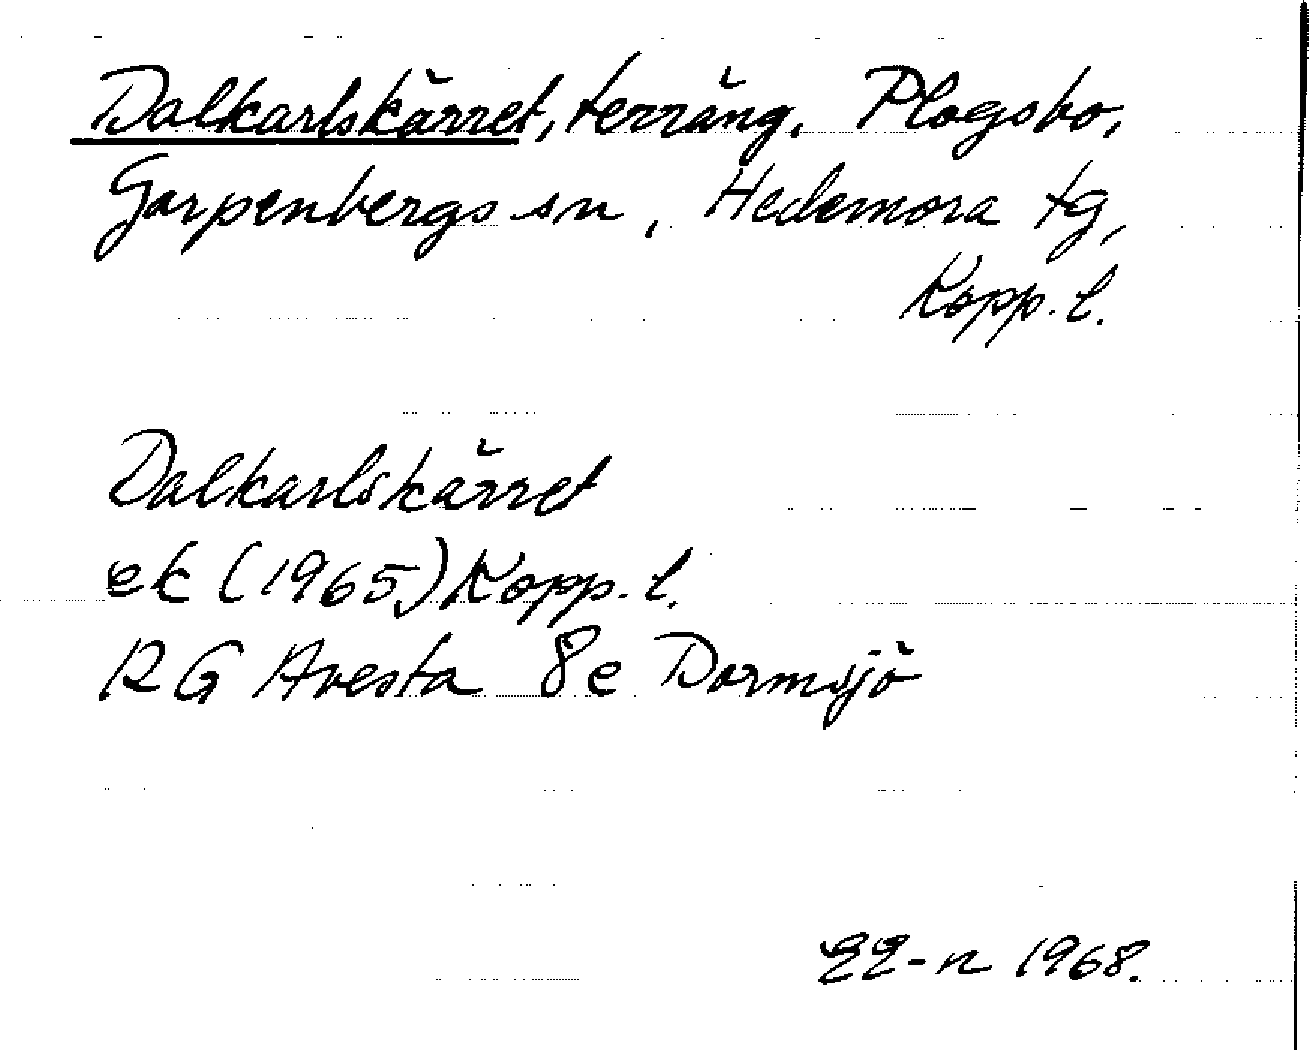 Dalkarlskärret, terräng. Plogsbo,
Garpenbergs sn, Hedemora tg,
Kopp. l.
Dalkarlskärret
ek (1965) Kopp. l.
RG Avesta 8e Dormsjö
1968.